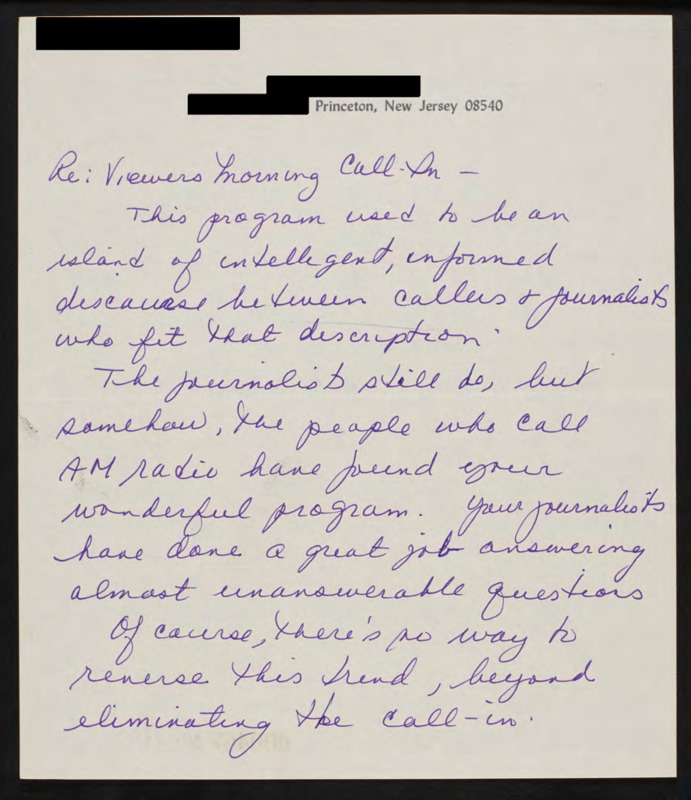 Princeton, New Jersey 08540
Re: Viewers Morning Call-In –
This program used to be an
island of intelligent, informed
discourse between callers & journalists
who fit that description.
The journalists still do, but
somehow, the people who call
AM radio have found your
wonderful program. Your journalists
have done a great job answering
almost unanswerable questions
Of course, there's no way to
reverse this trend, beyond
eliminating the call-in.